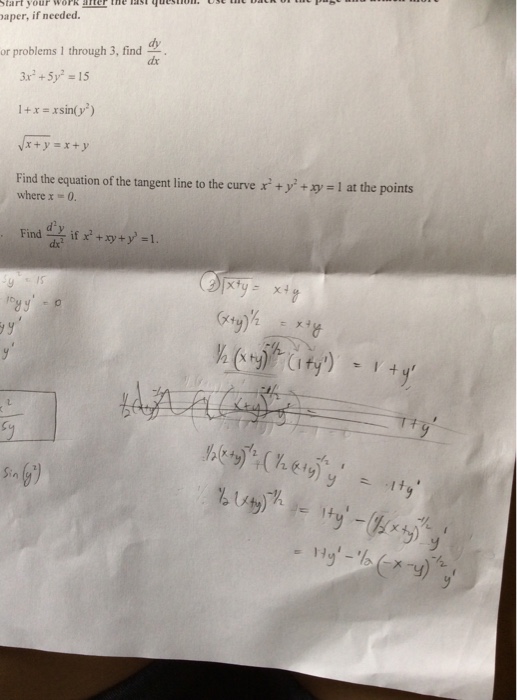 Start your work after the last question.
paper, if needed.
or problems 1 through 3, find dy/dx.
3x² + 5y² = 15
1 + x = x sin(y²)
√(x + y) = x + y
Find the equation of the tangent line to the curve x² + y² + xy = 1 at the points
where x = 0.
Find d²y/dx² if x² + xy + y³ = 1.
5y² = 15
10yy' = 0
yy'
y'
5y
sin(y²)
③ √(x+y) = x+y
(x+y)^½ = x+y
½(x+y)^-½ (1+y') = 1+y'
1+y'
½(x+y)^-½ + (½(x+y)^-½ y' = 1+y'
½(x+y)^-½ = 1+y' - (½(x+y)^-½ y'
= 1+y' - ½(-x-y)^-½ y'